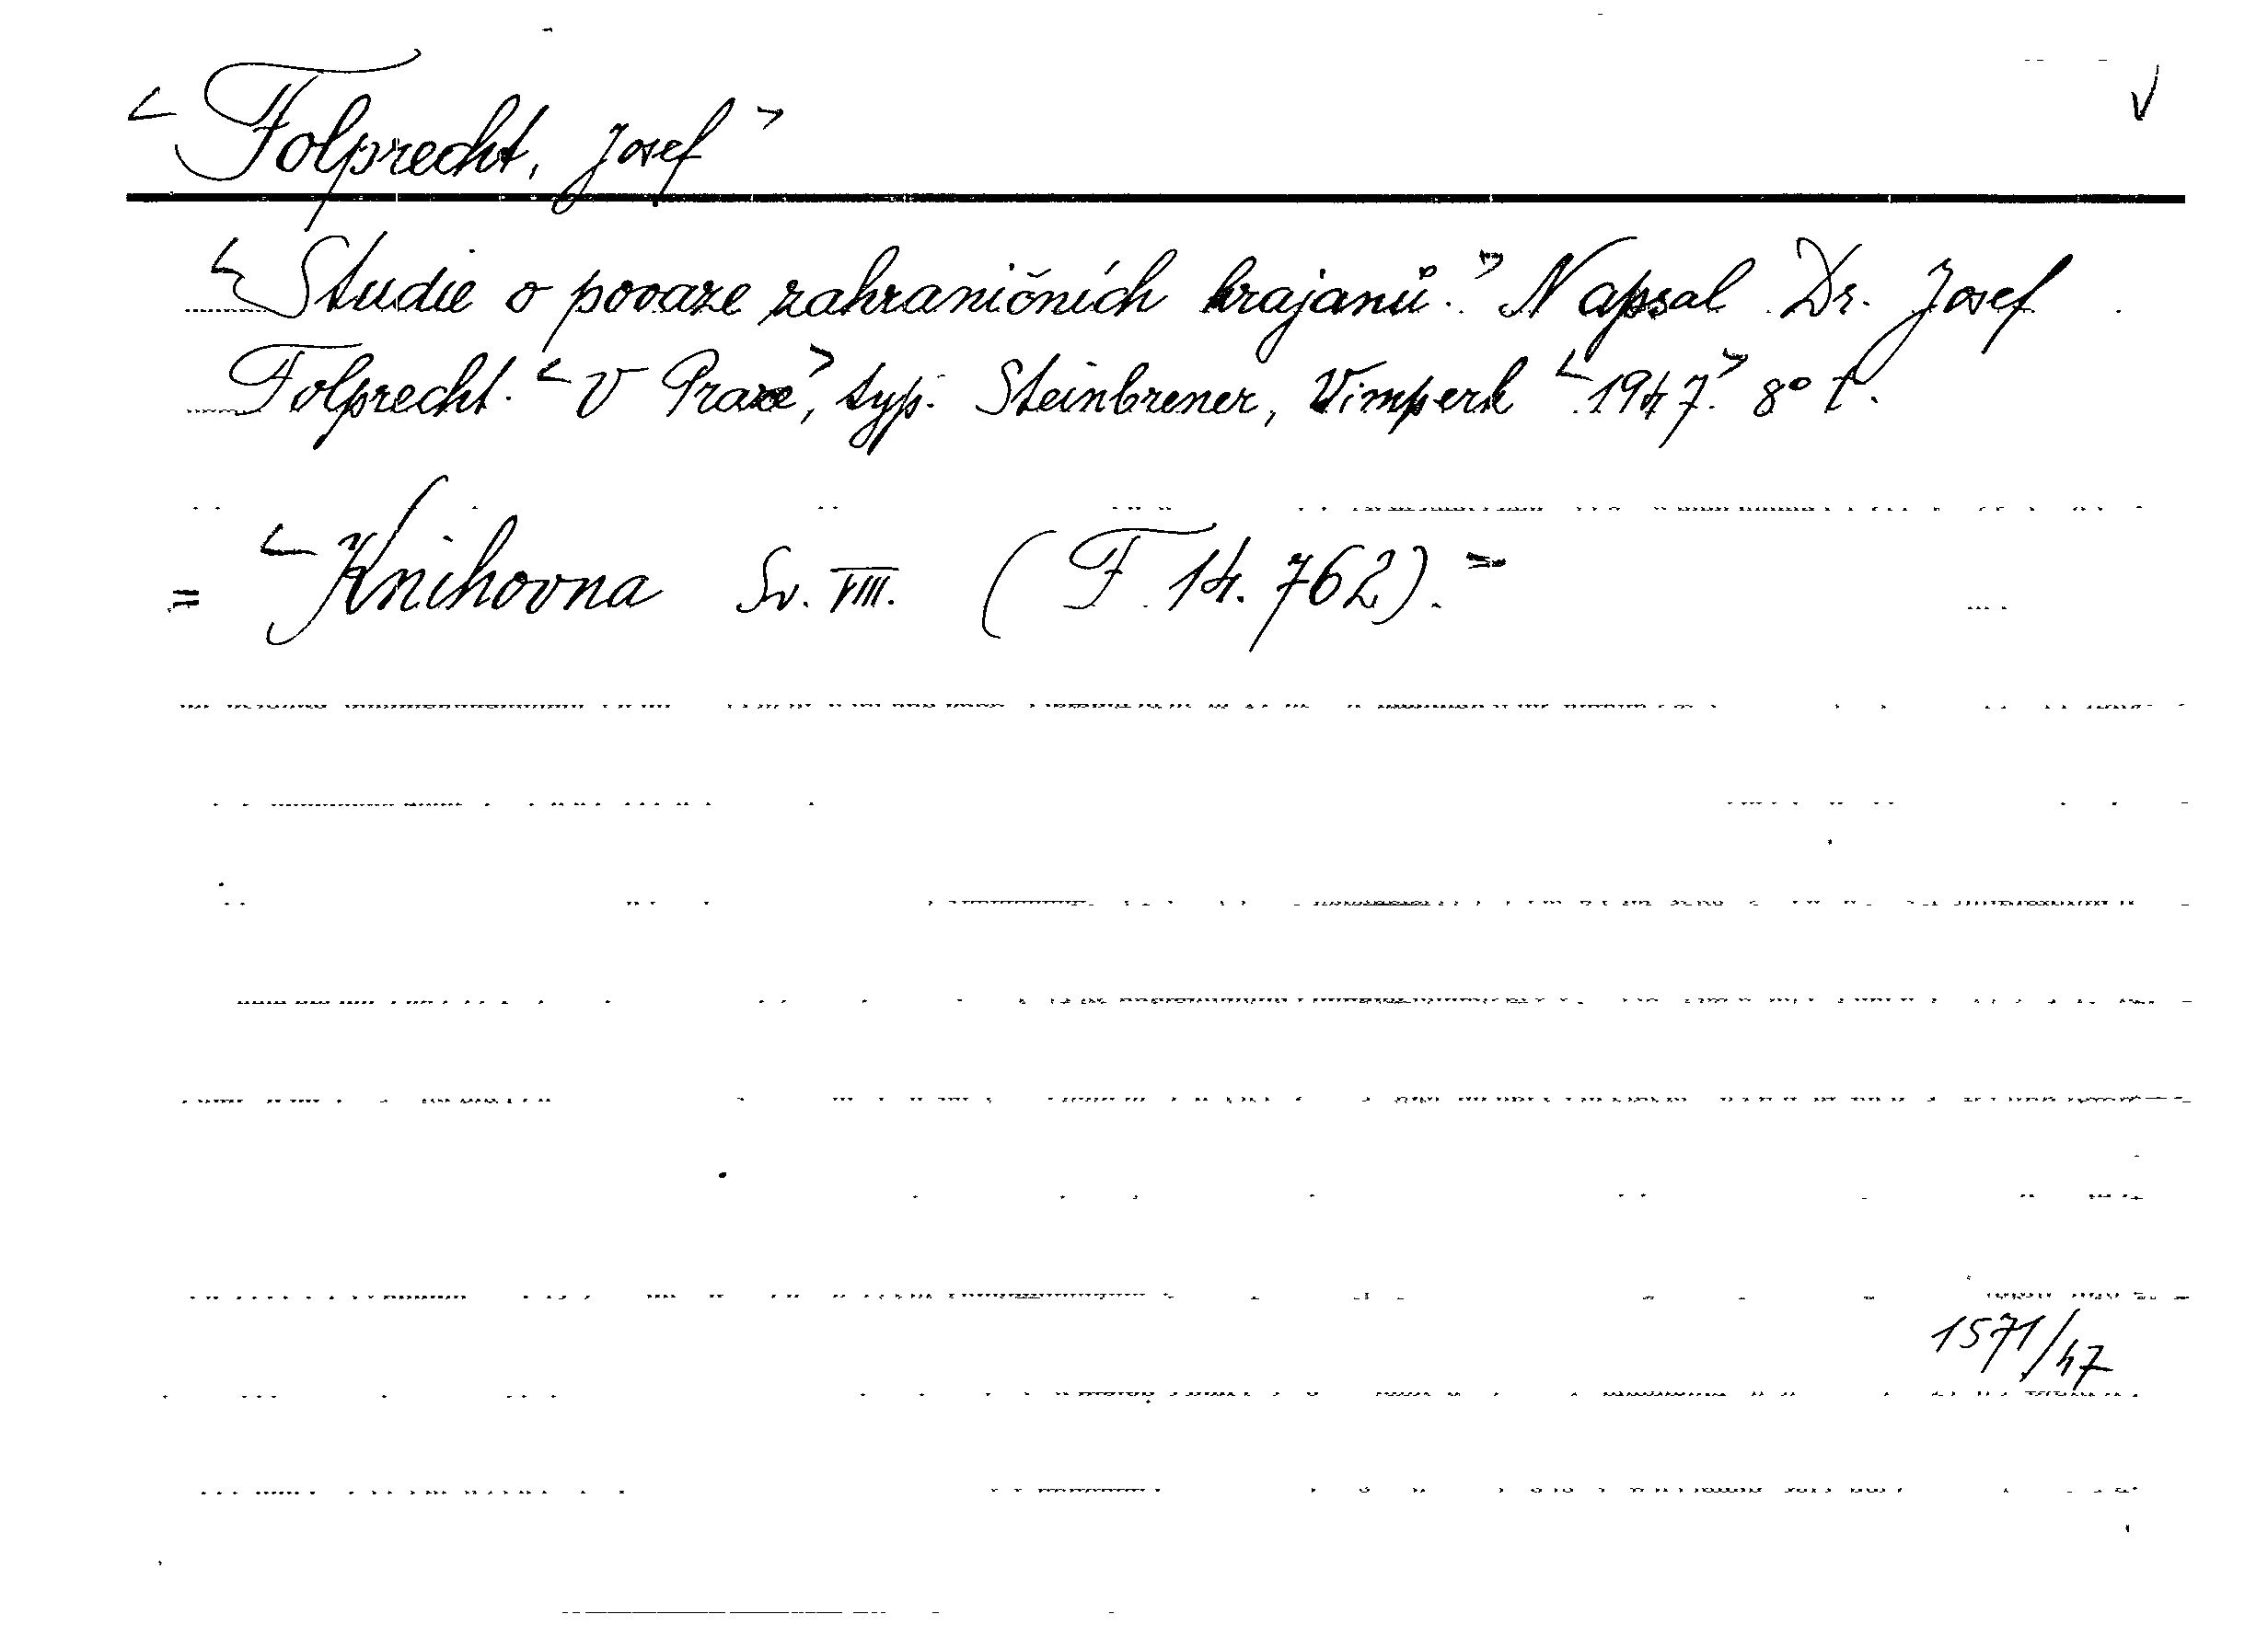 < Folprecht, Josef > V
< Studie o povaze zahraničních krajanů. > Napsal Dr. Josef
Folprecht. < V Praze >, typ. Steinbrener, Vimperk < 1947. > 8° t.
= < Knihovna Sv. VIII. ( F 14.762). >
1571/47